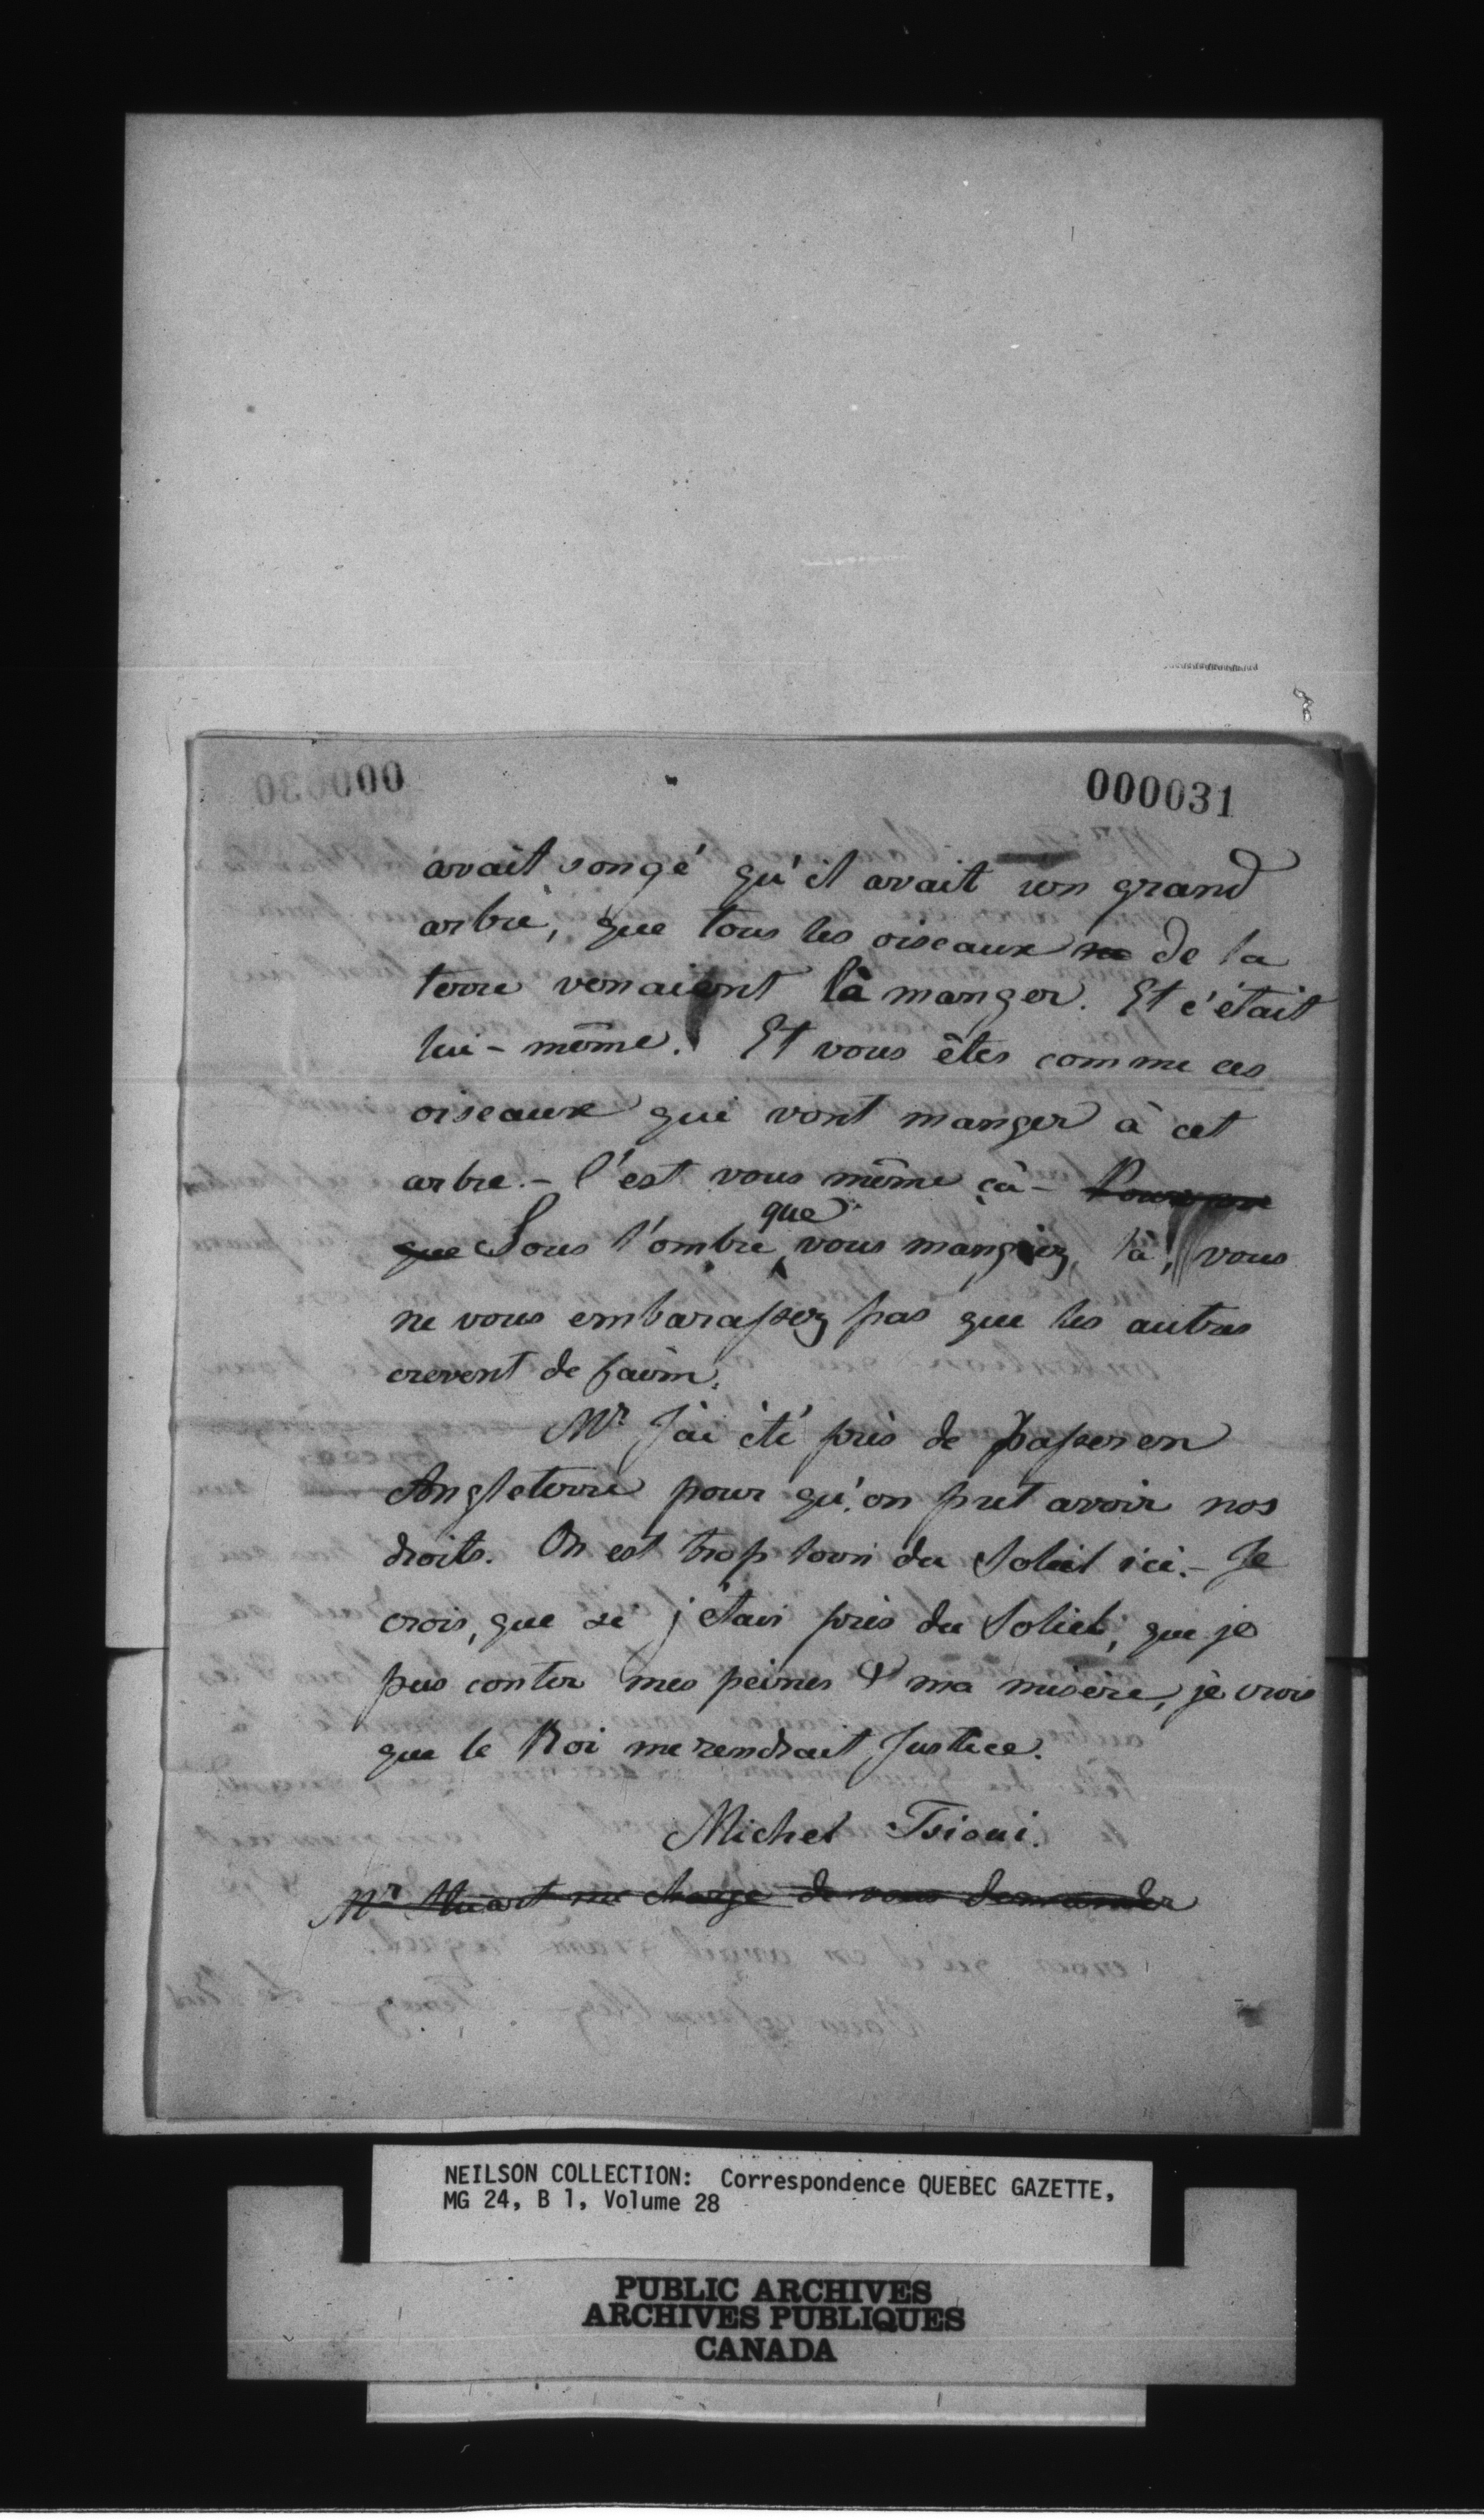 000031
avait songé qu'il avait un grand
arbre, que tous les oiseaux de la
terre venaient là manger. Et c'était
lui-même. Et vous êtes comme ces
oiseaux qui vont manger à cet
arbre. - C'est vous même çà -
que
que Sous l'ombre vous mangiez, là, vous
ne vous embarassez pas que les autres
crevent de faim.
Mr J'ai été près de passer en
Angleterre pour qu'on put avoir nos
droits. On est trop loin du Soleil ici. - Je
crois, que si j'étais près du Soleil, que je
pus conter mes peines & ma misère, je crois
que le Roi me rendrait Justice.
Michel Tsioui.
Mr Stuart me charge de vous demander
NEILSON COLLECTION: Correspondence QUEBEC GAZETTE,
MG 24, B 1, Volume 28
PUBLIC ARCHIVES
ARCHIVES PUBLIQUES
CANADA